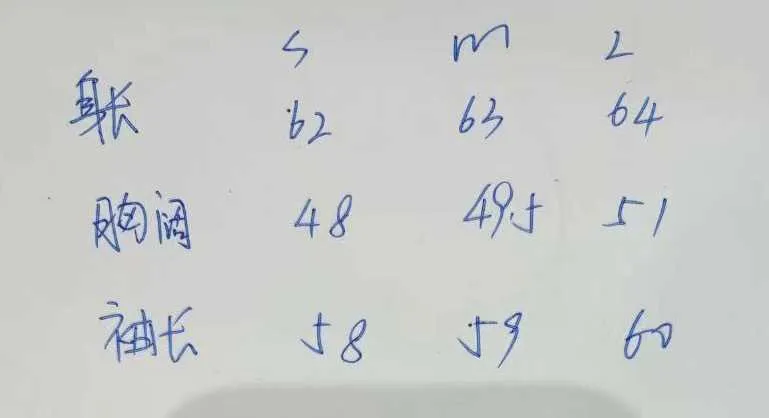 S M L
身长 62 63 64
胸阔 48 49.5 51
袖长 58 59 60